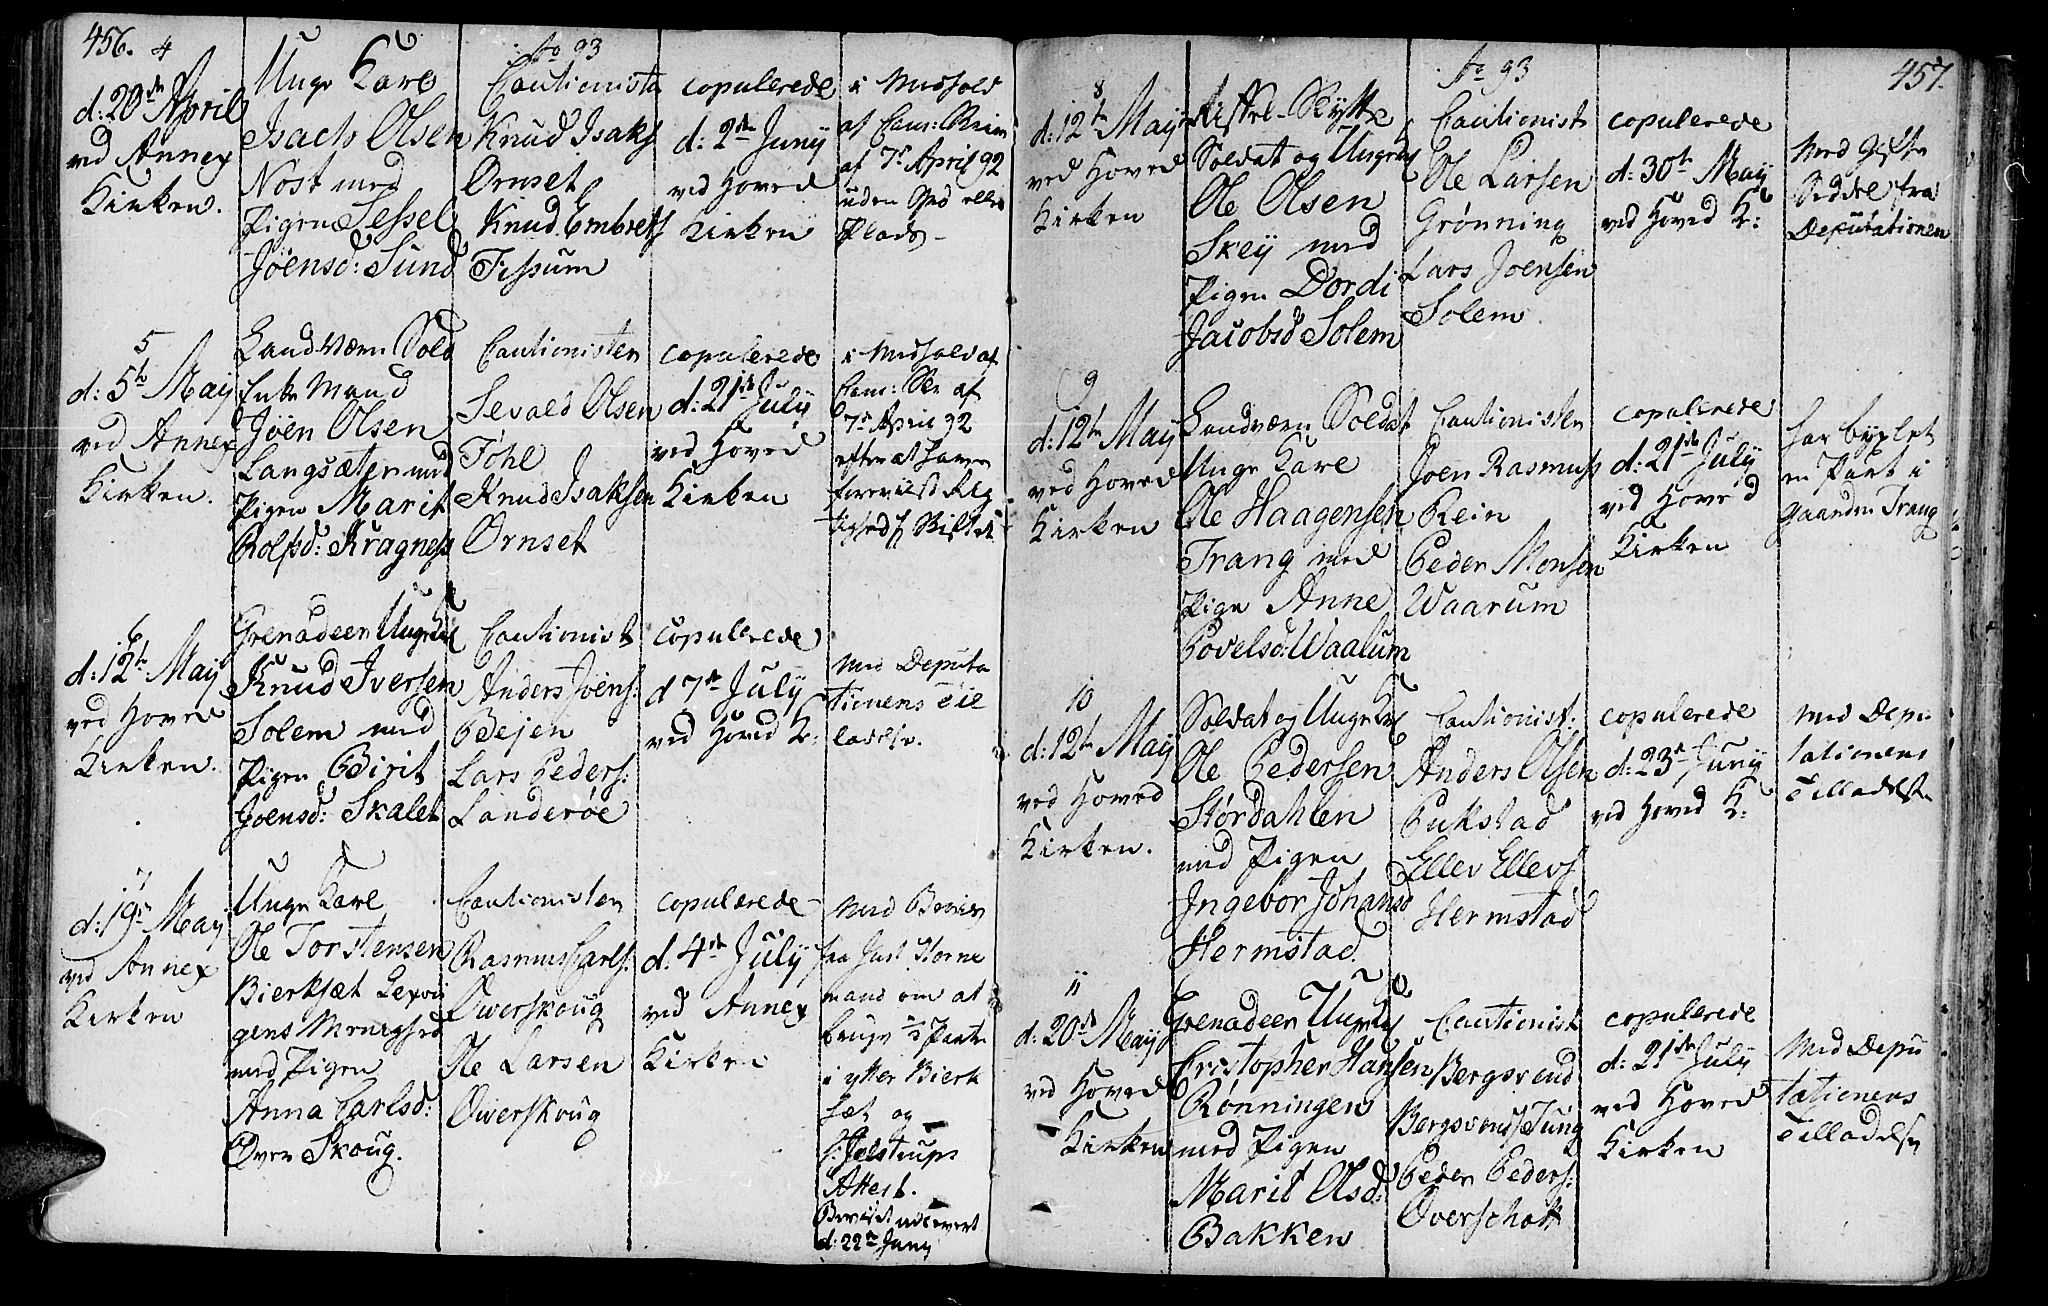 456.
Ao 93
4
d: 20de April
ved Annex
Kirken.
Unge Karl
Isach Olsen
Nost med
Pigen Sessel
Joensd: Sund
Cautionister
Knud Isaks
Ornset
Knud Embrets
Fissum
copulerede
d: 2de Juny
ved Hoved
Kirken
i Medhold
af Cam:
af 7de April 92
uden Grd eller
Plads
5
d: 5te May
ved Annex
Kirken.
Landværn Sold
Enke Mand
Joen Olsen
Langsæter med
Pigen Marit
Rolfsd: Kragness
Cautionister
Sevald Olsen
Fohl
Knud Isaksen
Ornset
copulerede
d: 21de July
ved Hoved
Kirken
i Medhold af
Cam: af
7de April 92
efter at have
foreviist
6
d: 12te May
ved Hoved
Kirken.
Grenadeer Unge Karl
Knud Iversen
Solem med
Pigen Birit
Joensd: Skalet
Cautionist
Anders Joens:
Bejen
Lars Peders:
Landerøe
copulerede
d 7de July
ved Hoved K:
med Deputa
tionens Til
ladelse.
7
d: 19de May
ved Annex
Kirken
Unge Karl
Ole Torstensen
Bierksæt Lexvi
gens
med Pigen
Anna Carlsd:
Over Skoug.
Cautionister
Rasmus Carls:
Owerskoug
Ole Larsen
Owerskoug
copulerede
d. 4de July
ved Annex
Kirken
med Beviis
fra Just Horne
mand om at
bruge 1/2 Parten
i ytter Bierk
sæt og
H: Jelstrups
Attest.
Beviiset udlevert
d: 22de Juny
457.
Ao 93
8
d: 12te May
ved Hoved
Kirken
Riffel-Skytte
Soldat og Unge Karl
Ole Olsen
Skey med
Pigen Dordi
Jacobsd Solem
Cautionist
Ole Larsen
Grønning
Lars Joensen
Solem
copulerede
d: 30te May
ved Hoved K:
Med Gifte
Seddel fra
Deputationen
9
d: 12te May
ved Hoved
Kirken
Landværn Soldat
Unge Karl
Ole Haagensen
Trang med
Pige Anne
Povelsd: Waalum
Cautionister
Joen Rasmuss
Rein
Peder Monsen
Waarum
copulerede
d: 21de July
ved Hoved
Kirken
har byxlet
en Part i
Gaarden Trang
10
d: 12te May
ved Hoved
Kirken.
Soldat og Unge Karl
Ole Pedersen
Størdahlen
med Pigen
Ingebor Johansd
Hermstad.
Cautionist:
Anders Olsen
Pukstad
Ellev Ellevs
Hermstad
copulerede
d: 23de Juny
ved Hoved K:
Med Depu
tationens
Tilladelse
11
d: 20de May
ved Hoved
Kirken
Grenadeer Unge Karl
Cristopher Hansen
Rønningen
med Pigen
Marit Olsd:
Bakken
Cautionist
Bergsvend
Bergsvends Jung
Peder Peders:
Overschott
copulerede
d: 21de July
ved Hoved
Kirken
Med Depu
tationens
Tilladelse